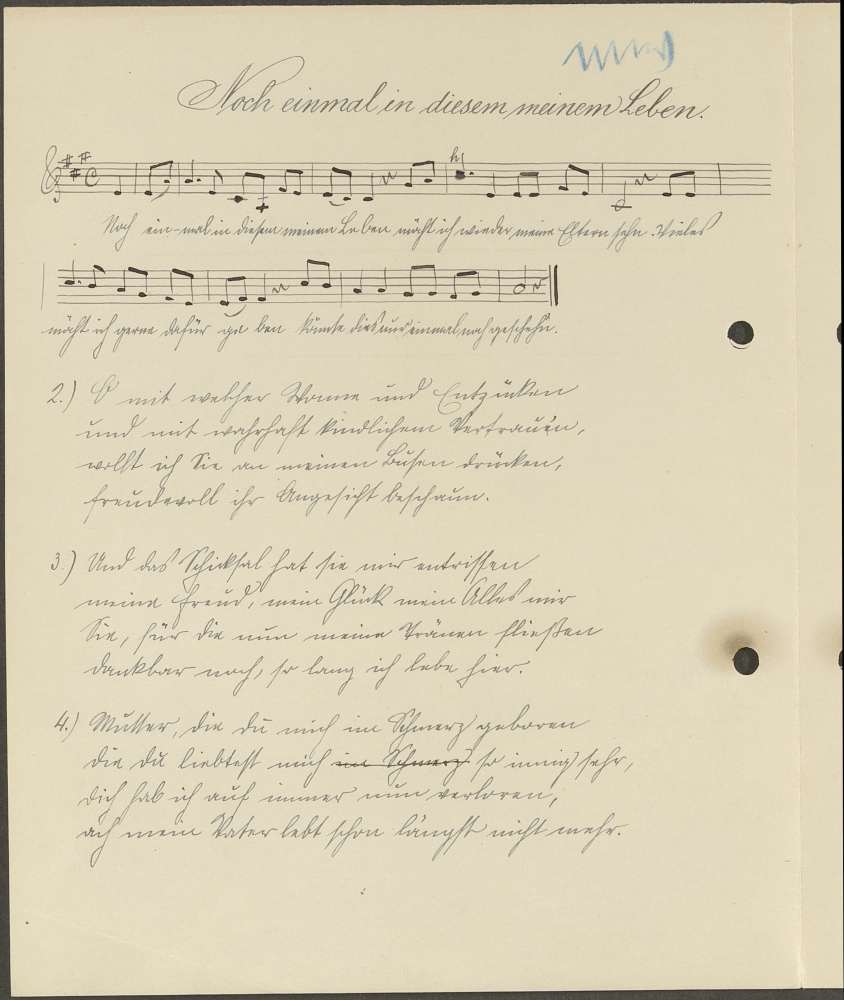 Noch einmal in diesem meinem Leben.
Noch ein-mal in diesem meinem Le ben möcht ich wieder meine Eltern sehn. Vieles
möcht ich gerne dafür ge ben könnte dies nur einmal noch geschehn.
2.) O mit welcher Wonne und Entzücken
und mit wahrhaft kindlichem Vertrauen,
wollt ich Sie an meinen Busen drücken,
freudevoll ihr Angesicht beschaun.
3.) Und das Schicksal hat sie mir entrissen
meine Freud, mein Glück mein Alles mir
Sie, für die nun meine Tränen fließen
dankbar noch, so lang ich lebe hier.
4.) Mutter, die du mich im Schmerz geboren
die du liebtest mich im Schmerz so innig sehr,
dich hab ich auf immer nun verloren,
ach mein Vater lebt schon längst nicht mehr.